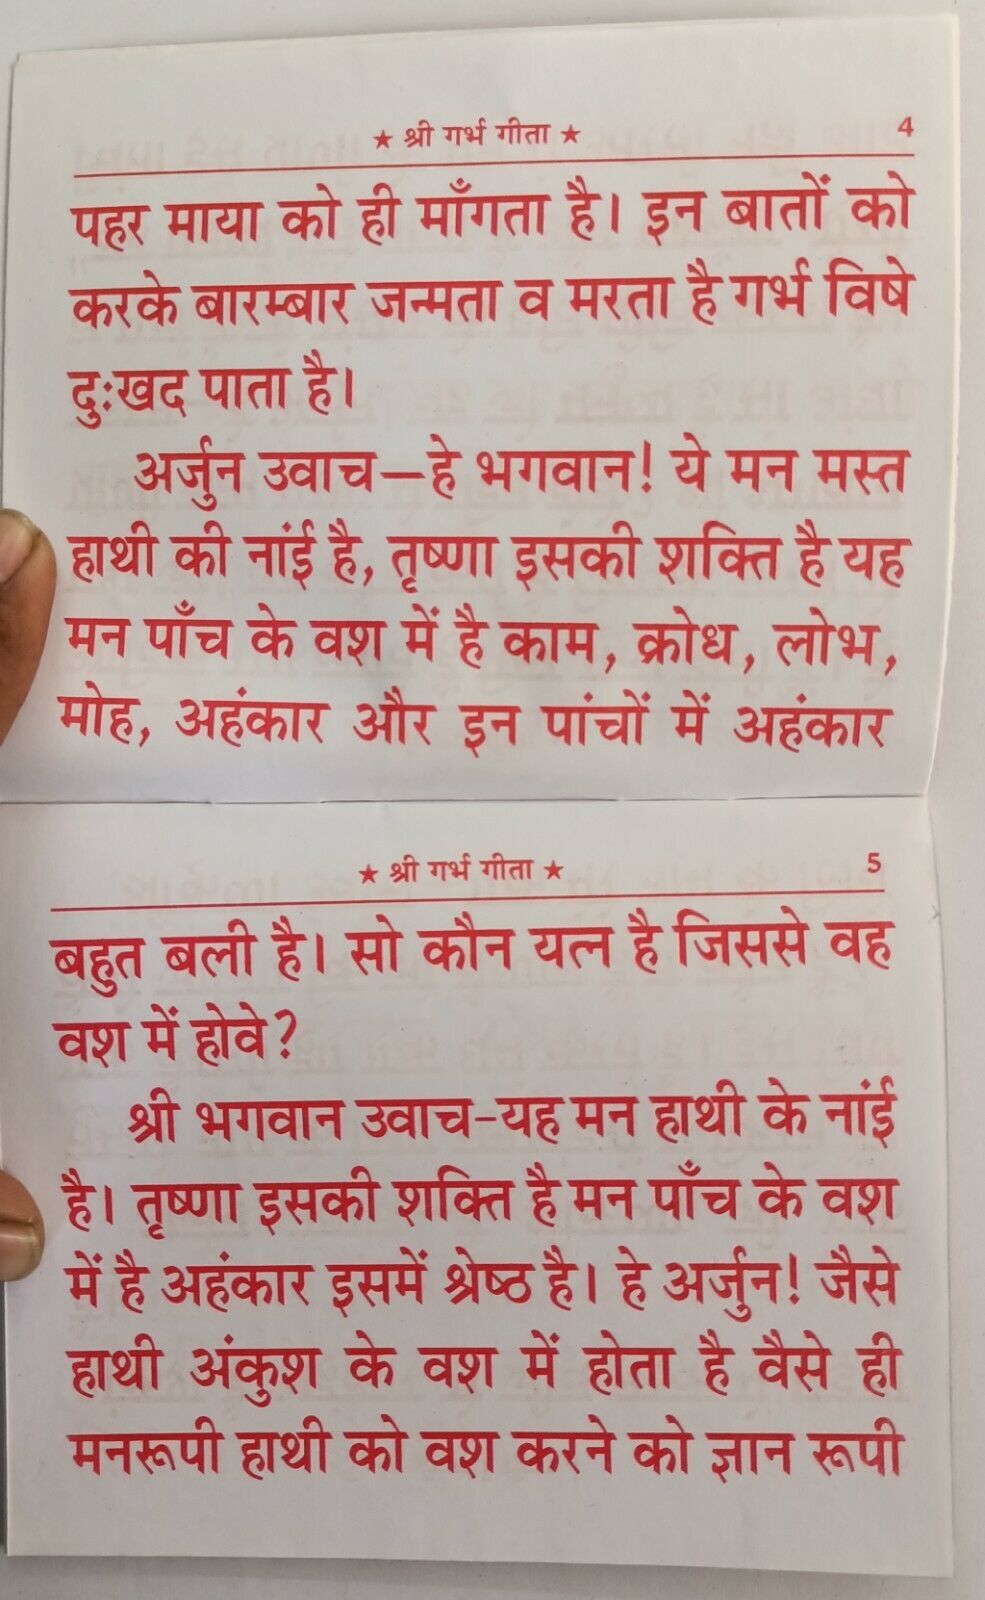 ★ श्री गर्भ गीता ★ 4
पहर माया को ही माँगता है। इन बातों को
करके बारम्बार जन्मता व मरता है गर्भ विषे
दुःखद पाता है।
अर्जुन उवाच—हे भगवान! ये मन मस्त
हाथी की नांई है, तृष्णा इसकी शक्ति है यह
मन पाँच के वश में है काम, क्रोध, लोभ,
मोह, अहंकार और इन पांचों में अहंकार
★ श्री गर्भ गीता ★ 5
बहुत बली है। सो कौन यत्न है जिससे वह
वश में होवे?
श्री भगवान उवाच-यह मन हाथी के नांई
है। तृष्णा इसकी शक्ति है मन पाँच के वश
में है अहंकार इसमें श्रेष्ठ है। हे अर्जुन! जैसे
हाथी अंकुश के वश में होता है वैसे ही
मनरूपी हाथी को वश करने को ज्ञान रूपी